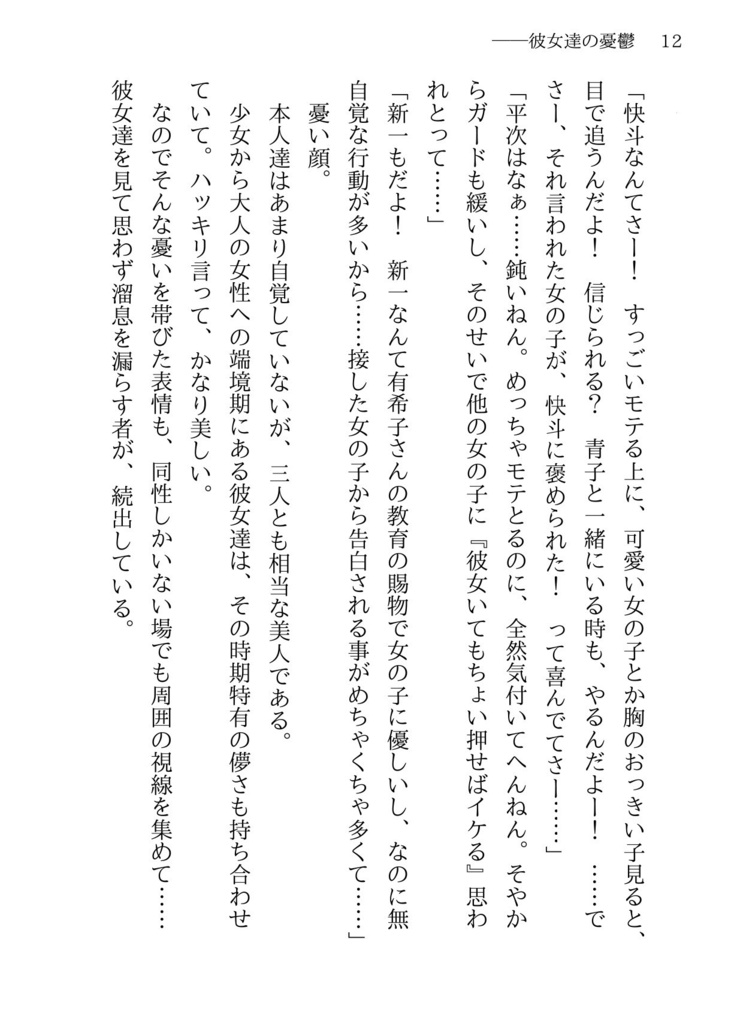 ――彼女達の憂鬱　12
「快斗なんてさー！　すっごいモテる上に、可愛い女の子とか胸のおっきい子見ると、
目で追うんだよ！　信じられる？　青子と一緒にいる時も、やるんだよー！　……で
さー、それ言われた女の子が、快斗に褒められた！　って喜んでてさー……」
「平次はなぁ……鈍いねん。めっちゃモテとるのに、全然気付いてへんねん。そやか
らガードも緩いし、そのせいで他の女の子に『彼女いてもちょい押せばイケる』思わ
れとって……」
「新一もだよ！　新一なんて有希子さんの教育の賜物で女の子に優しいし、なのに無
自覚な行動が多いから……接した女の子から告白される事がめちゃくちゃ多くて……」
　憂い顔。
　本人達はあまり自覚していないが、三人とも相当な美人である。
　少女から大人の女性への端境期にある彼女達は、その時期特有の儚さも持ち合わせ
ていて。ハッキリ言って、かなり美しい。
　なのでそんな憂いを帯びた表情も、同性しかいない場でも周囲の視線を集めて……
彼女達を見て思わず溜息を漏らす者が、続出している。